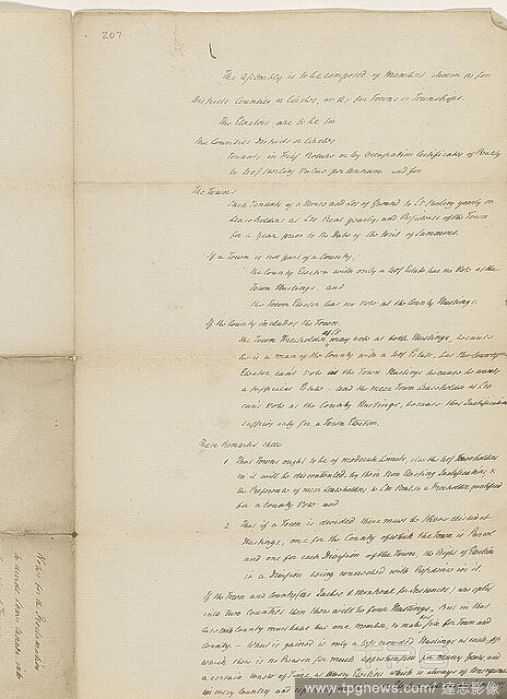 207
The Assembly is to be composed of Members chosen as for
Districts Counties or Circles, or as for Towns or Townships.
The Electors are to be so
The Counties Districts or Circles
Tenants in Fief Roture or by Occupation Certificates of Realty
to 40/ sterling Value per Annum and for
The Towns
Such Tenants of a House and Lot of Ground to £5 sterling yearly or
Leaseholders at £10 Rent yearly, and Residents of the Town
for a Year prior to the Date of the Writ of Summons.
If a Town is not part of a County;
the County Elector with only a 40/ Estate has no Vote at the
Town Hustings and
the Town Elector has no Vote at the County Hustings.
If the County includes the Town
the Town Freeholder of £5 may vote at both Hustings, because
he is a man of the County with a 40/ Estate, but the County
Elector can't Vote at the Town Hustings because he wants
a sufficient Estate - and the mere Town Leaseholder at £10
can't Vote at the County Hustings, because this Qualification
suffices only for a Town Election.
These Remarks shew
1. That Towns ought to be of moderate Limits, else the 40/ Freeholders
in it will be discontented by their Non Electing Qualification &
the Preference of mere Leaseholders at £10 Rent, to a Freeholder qualified
for a County Vote and
2. That if a Town is divided there must be three distinct
Hustings, one for the County of which the Town is Parcel
and one for each Division of the Town, the Right of Election
in a Division being connected with Residence in it.
If the Town and County (as Quebec & Montreal for Instances) are split
into two Counties then there will be four Hustings, But in that
Case each County must have but one member, to make but four for Town and
County. - What is gained is only a less crowded Hustings at each Off
which there is no Reason for much apprehension for many Years, and
a certain Waste of Time at every Election which is always of Consequence
in every Country and
Notes for the Proclamation
to divide Lower Canada into
www.tpgnews.com 達志影像
TPG